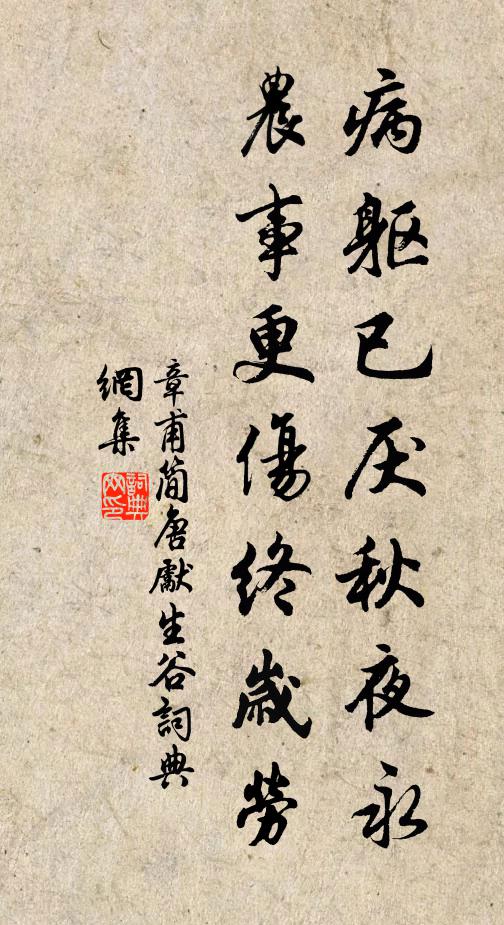 病軀已厌秋夜永
農事更傷終歲勞
章甫简唐獻生谷詞典
網集
詞典網印